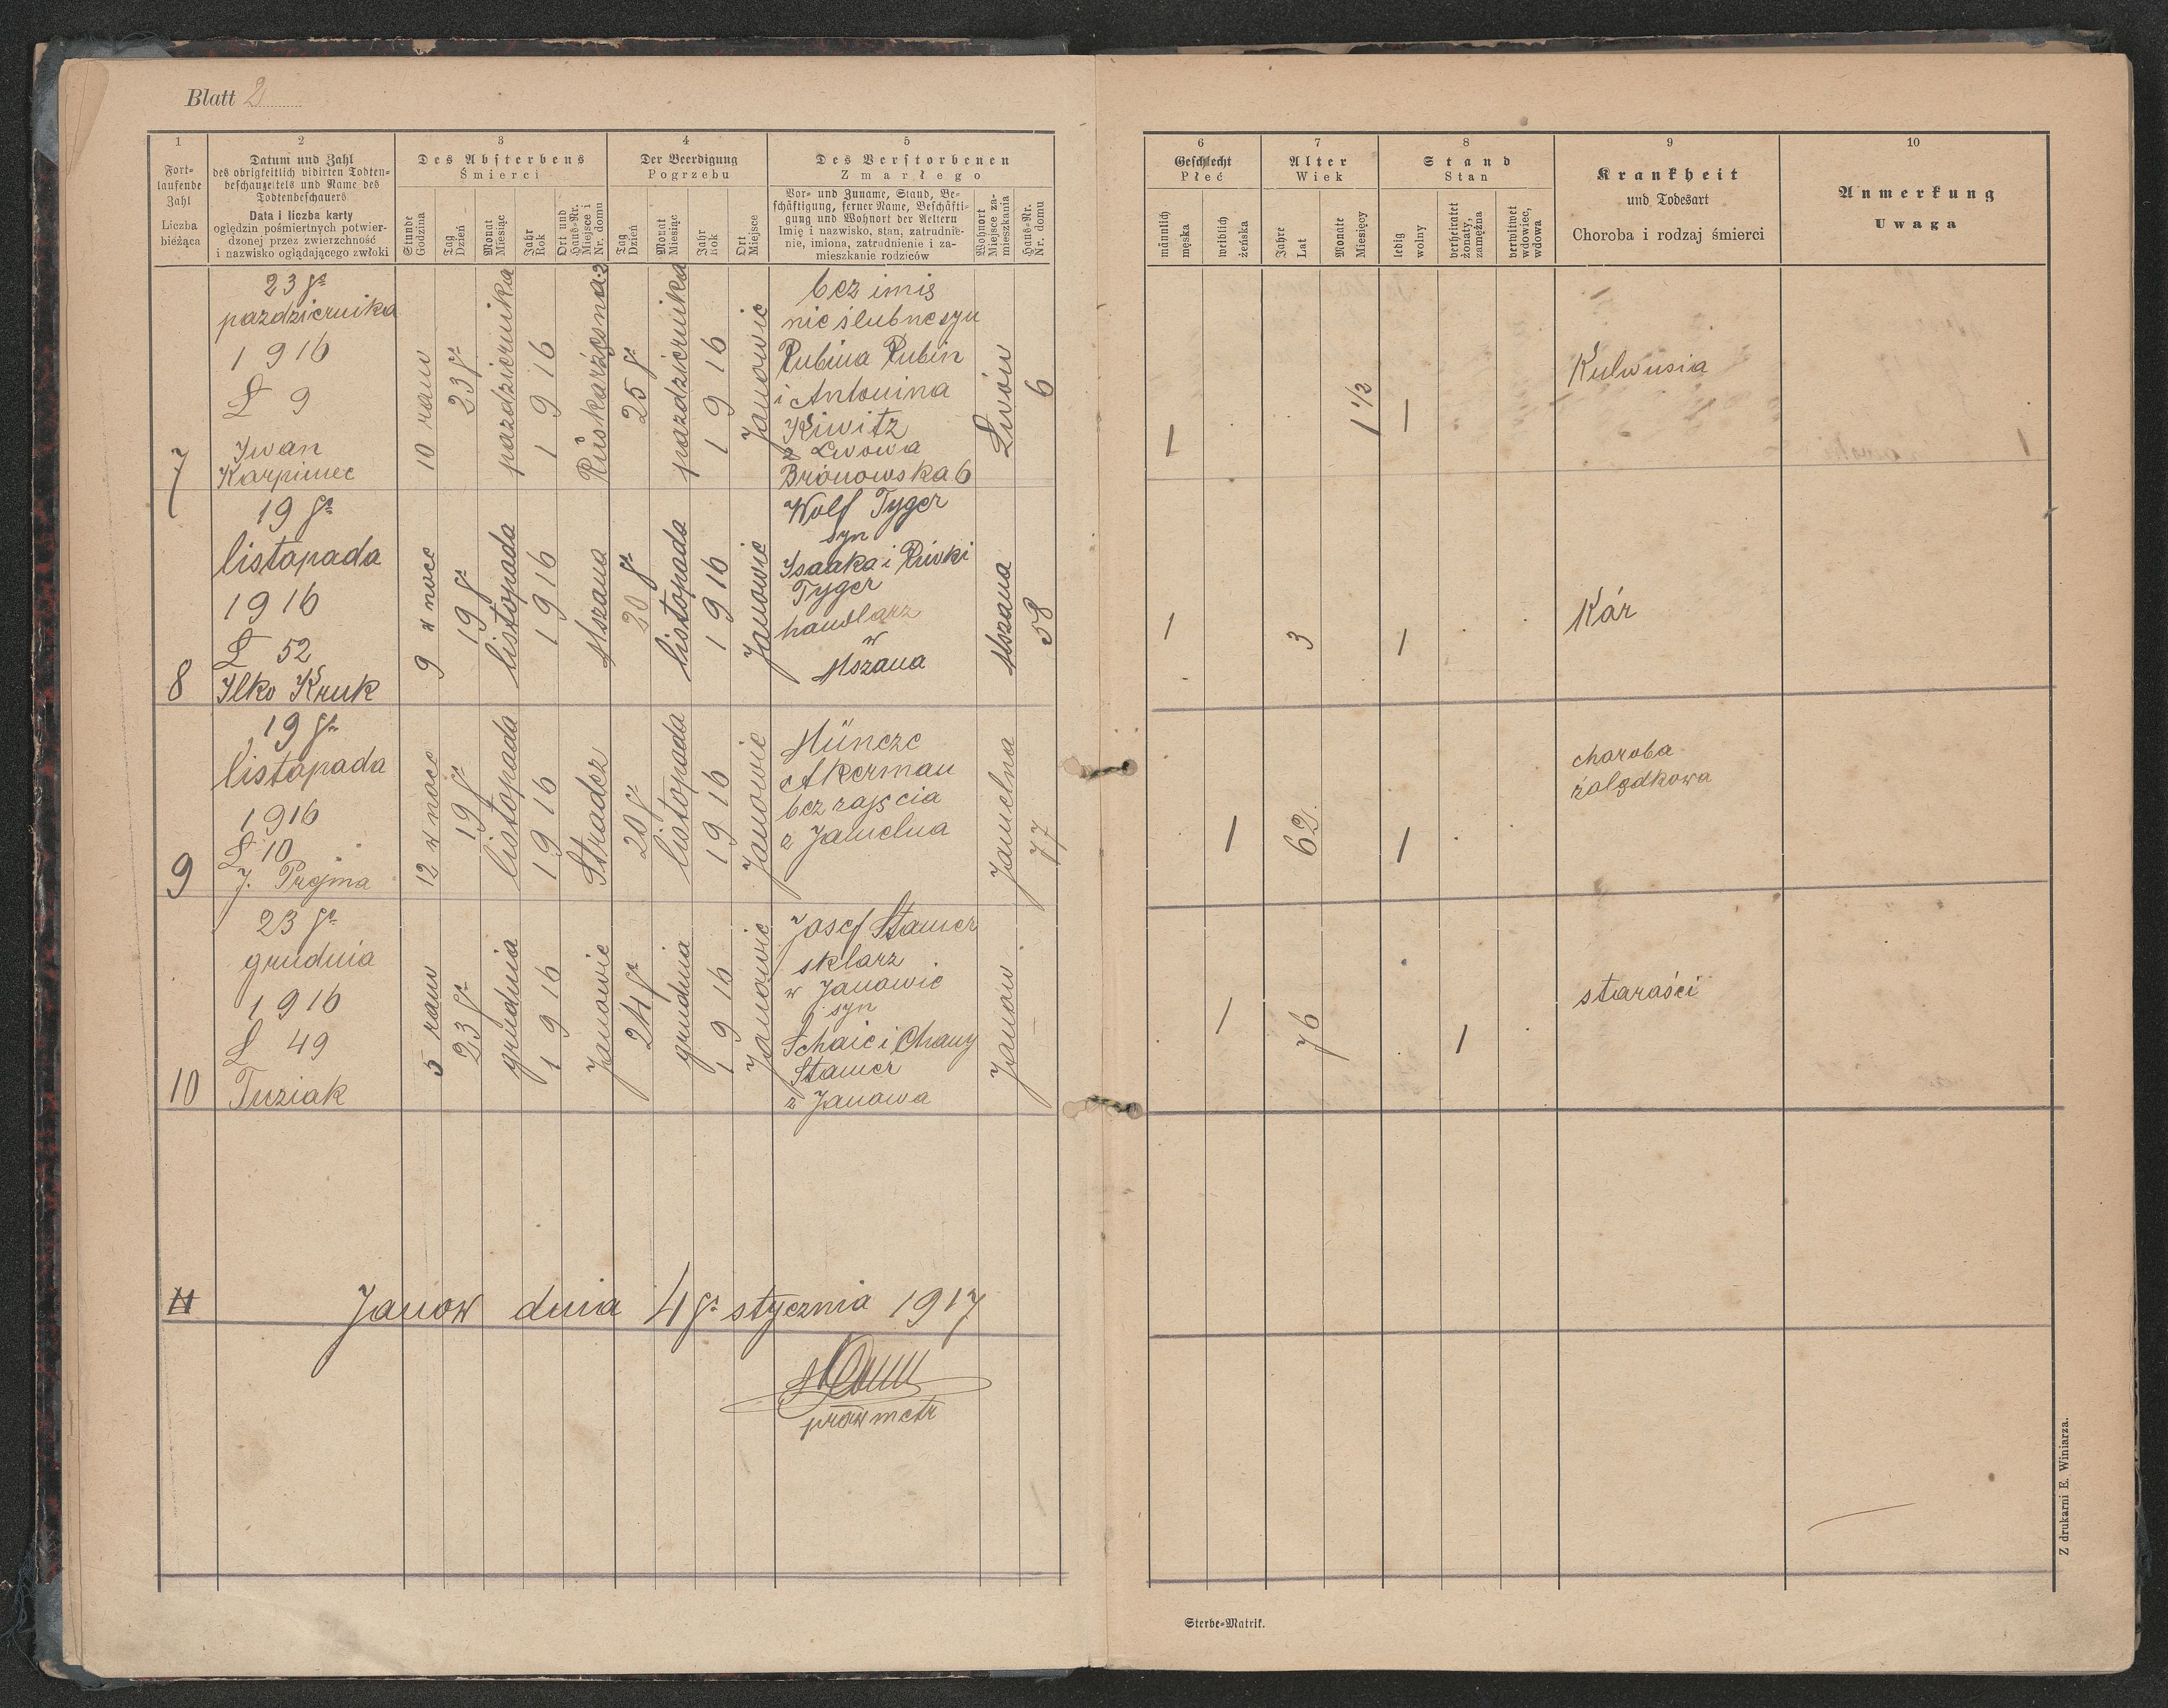 Blatt 2
1
Fort-
laufende
Zahl
Liczba
bieżąca
2
Datum und Zahl
des obrigkeitlich vidirten Todten-
beschauzettels und Name des
Todtenbeschauers
Data i liczba karty
oględzin pośmiertnych potwier-
dzonej przez zwierzchność
i nazwisko oglądającego zwłoki
3
Des Absterbens
Śmierci
Stunde
Godzina
Tag
Dzień
Monat
Miesiąc
Jahr
Rok
Ort und
Haus-Nr.
Miejsce i
Nr. domu
4
Der Beerdigung
Pogrzebu
Tag
Dzień
Monat
Miesiąc
Jahr
Rok
Ort
Miejsce
5
Des Verstorbenen
Zmarłego
Vor- und Zuname, Stand, Be-
schäftigung, ferner Name, Beschäfti-
gung und Wohnort der Aeltern
Imię i nazwisko, stan, zatrudnie-
nie, imiona, zatrudnienie i za-
mieszkanie rodziców
Wohnort
Miejsce za-
mieszkania
Haus-Nr.
Nr. domu
6
Geschlecht
Płeć
männlich
męska
weiblich
żeńska
7
Alter
Wiek
Jahre
Lat
Monate
Miesięcy
8
Stand
Stan
ledig
wolny
verheiratet
żonaty,
zamężna
verwitwet
wdowiec,
wdowa
9
Krankheit
und Todesart
Choroba i rodzaj śmierci
10
Anmerkung
Uwaga
7
23 go
pazdziernika
1916
L 9
Iwan
Karpiniec
10 rano
23 go
pazdziernika
1916
25 go
pazdziernika
1916
Janowie
bez imię
nieślubne syn
Rubina Rubin
i Antonina
Kiwitz
z Lwowa
Bronowska 6
Lwów
6
1
1 1/2
1
Kulwusia
8
19 go
listopada
1916
L 52
Ilko Kruk
9 w noce
19 go
listopada
1916
Mszana
20 go
listopada
1916
Janowie
Wolf Tyger
syn
Isaaka i Rivki
Tyger
handlarz
w
Mszana
Mszana
58
1
3
1
Kór
9
19 go
listopada
1916
L 10
J. Projma
12 w noce
19 go
listopada
1916
Stradcz
20 go
listopada
1916
Janowie
Müncze
Akerman
bez zajścia
z Jamelna
Jamelna
77
1
62
1
choroba
żołądkowa
10
23 go
grudnia
1916
L 49
Tuziak
5 rano
23 go
grudnia
1916
Janowie
24 go
grudnia
1916
Janowie
Josef Stamer
sklarz
w Janowie
syn
Schaie i Chany
Stamer
z Janowa
Janow
1
76
1
starości
11
Janow dnia 4 go stycznia 1917
prow metr
Sterbe-Matrik.
Z drukarni E. Winiarza.